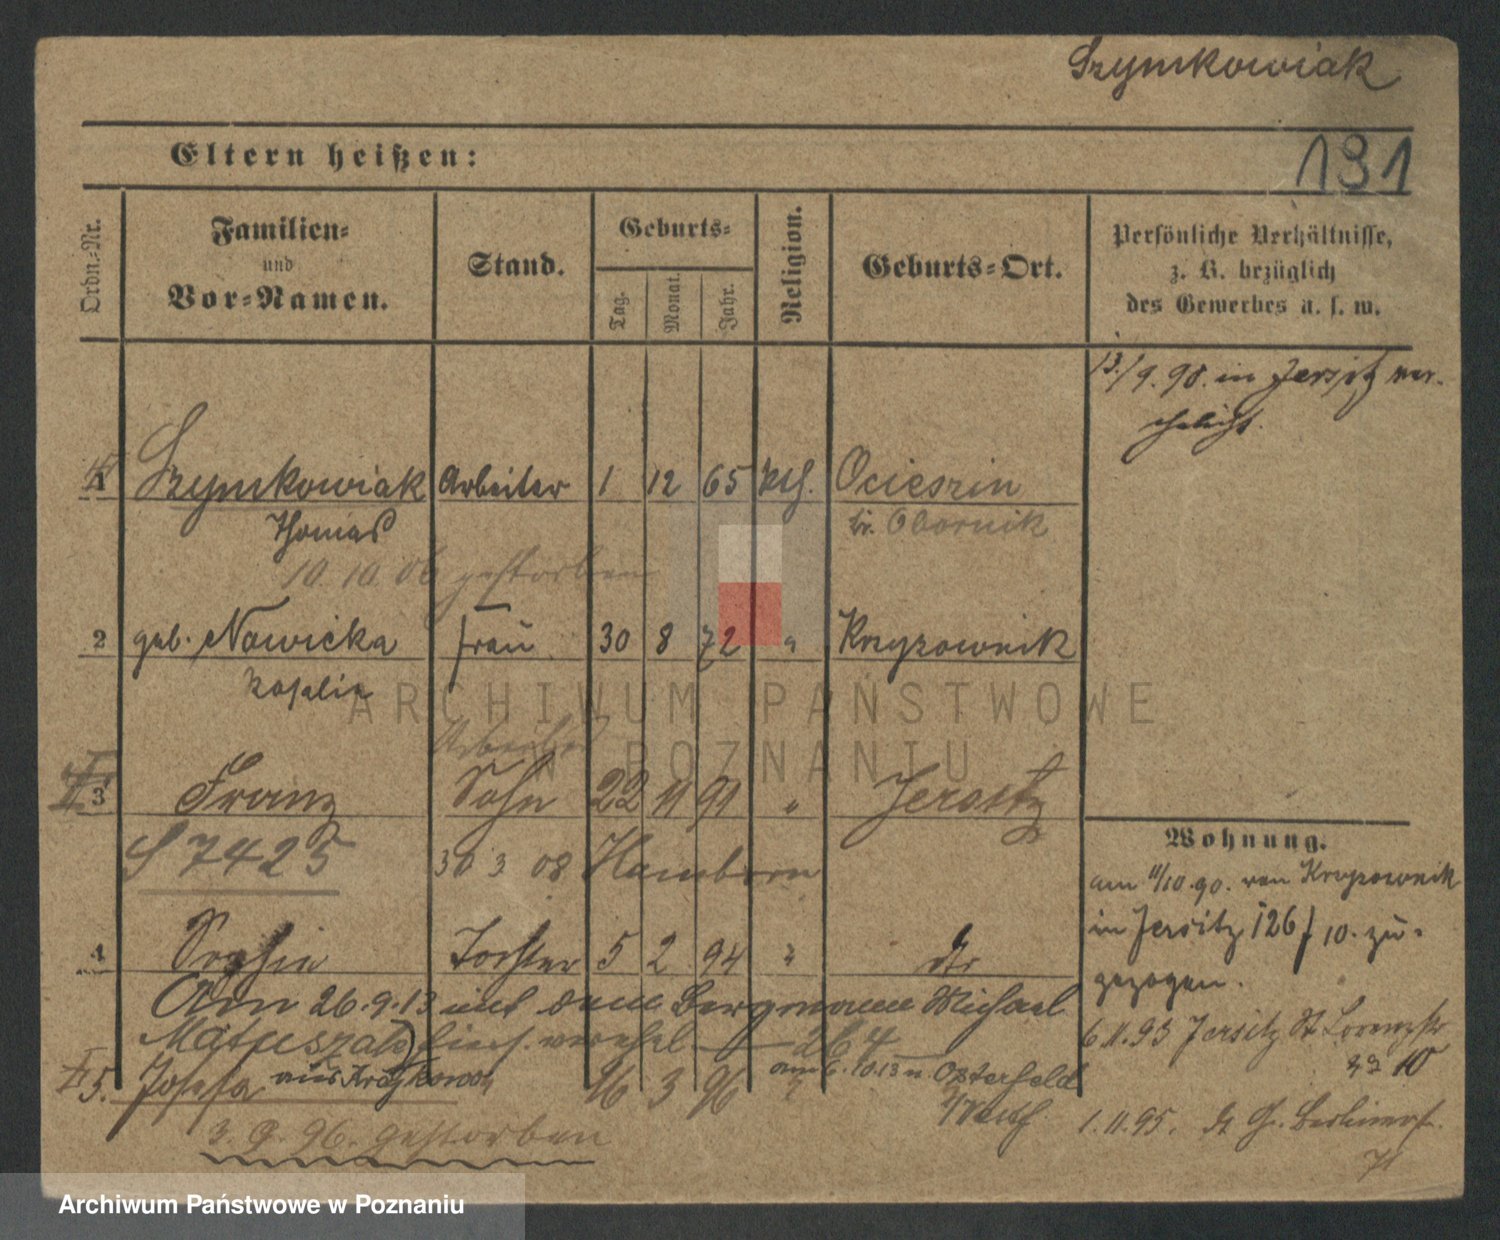 Szymkowiak
Eltern heißen:
191
Ordn.-Nr.
Familien-
und
Vor-Namen.
Stand.
Geburts-
Tag.
Monat.
Jahr.
Religion.
Geburts-Ort.
Persönliche Verhältnisse,
z. B. bezüglich
des Gewerbes u. s. w.
13./9. 90. in Jersitz ver-
ehelicht.
1 Szymkowiak Arbeiter 1 12 65 kth. Ociesrin
Thomas Kr. Obornik
10.10.06 gestorben
2 geb. Nowicka Frau 30 8 72 " Krzyzownik
Rosalie
ARCHIWUM PAŃSTWOWE
W POZNANIU
Arbeiter
3 Franz Sohn 22 11 91 " Jersitz
S 7425 30 3 08 Hamborn
Wohnung.
am 11/10. 90. von Krzyzownik
in Jersitz 126/10. zu-
gezogen.
4 Sophie Tochter 5 2 94 " dto
Am 26.9.13 mit dem Bergmann Michael
Matuszak hier verehel. 264
6.11.93 Jersitz St Lorenzstr
10
5. Josefa aus 16 3 96 " am 6.10.13 n. Osterfeld
3. 9. 96. gestorben
1.11.95. Gr. Berlinerstr.
71
Archiwum Państwowe w Poznaniu